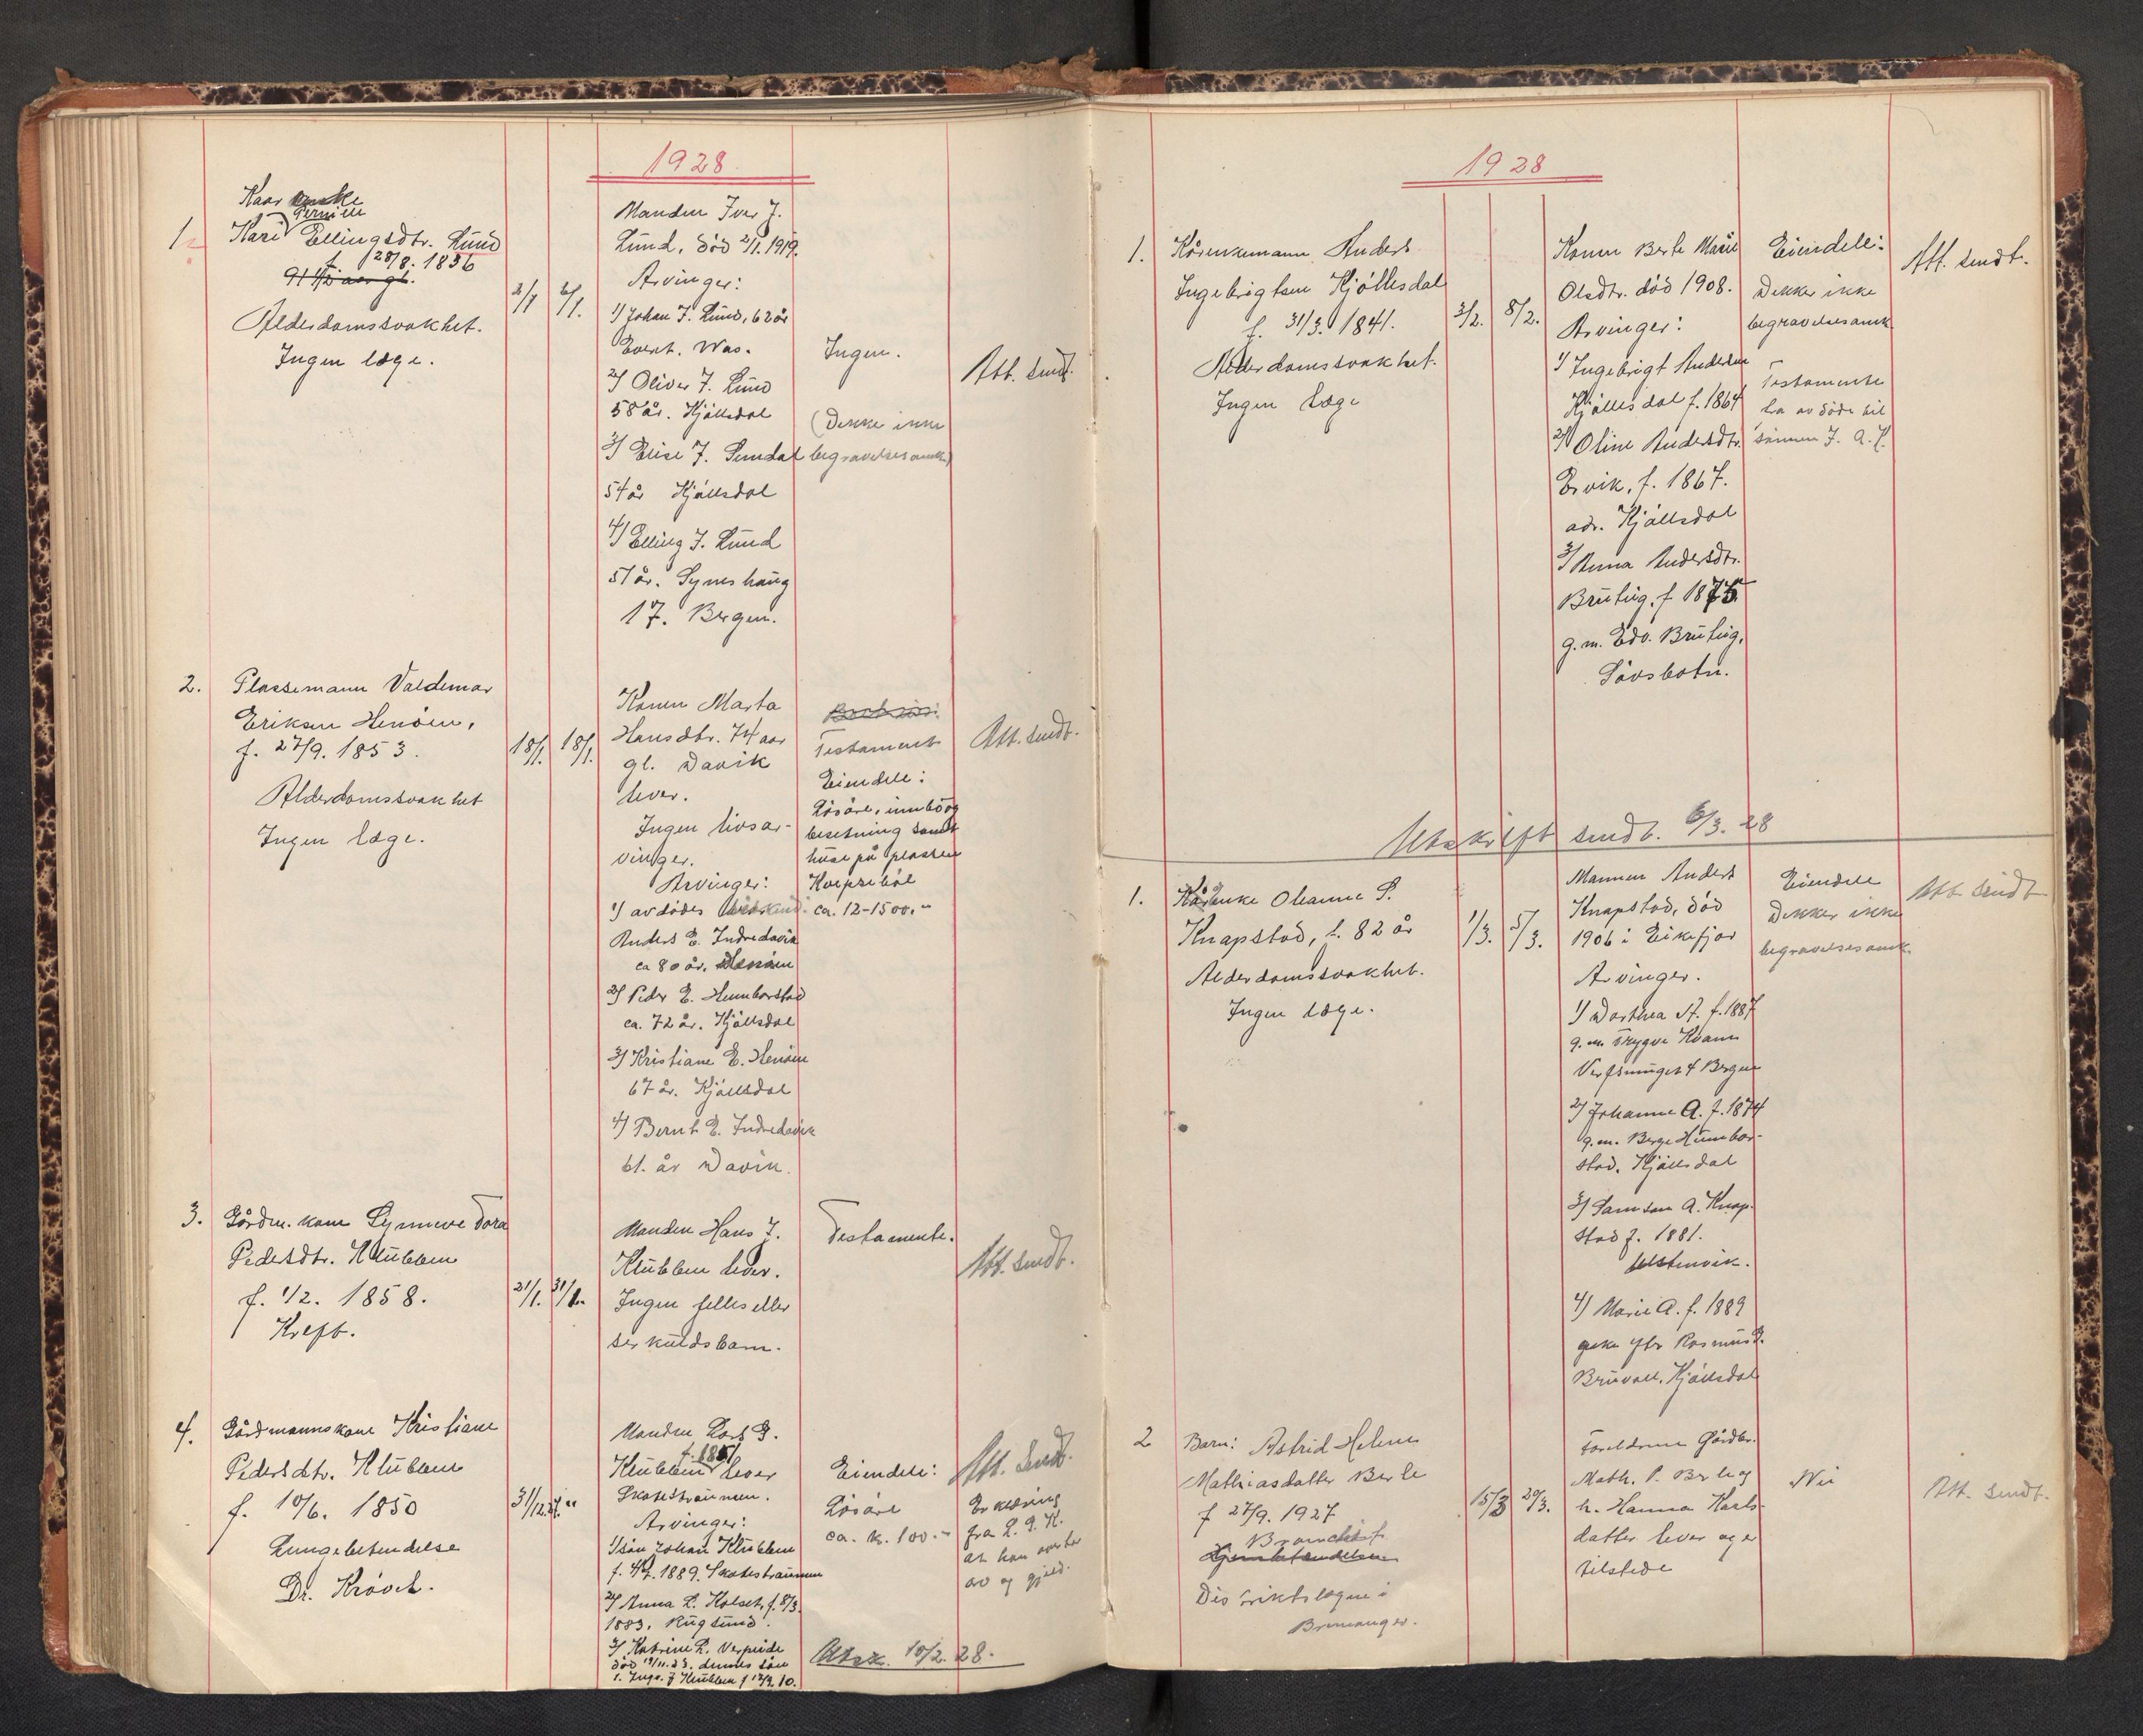 1928
1
Kaar enke
Pernille
Kari Ellingsdtr. Lund
f. 28/8. 1836
91 1/2 aar gl.
Alderdomssvakhet.
Ingen læge.
2/1
6/1.
Manden Iver J.
Lund, död 2/1. 1919.
Arvinger:
1) Johan J. Lund, 62 år
2) Oliver J. Lund
58 år. Hjällsdal
3) Elise J. Lundal
54 år Hjällsdal
4) Elling J. Lund
51 år. Syneshaug
17. Bergen.
Ingen.
(Dekke ikke
begravelsesomk.)
Att. sendt.
2.
Plassemann Valdemar
Eriksen Henöen,
f. 27/9. 1853.
Alderdomssvakhet
Ingen læge.
18/1.
18/1.
Konen Marta
Hansdtr. 74 aar
gl. Davik
lever.
Ingen livsar-
vinger.
Arvinger:
1) avdödes
Anders E. Indredavik
ca 80 år. Henöen
2) Peder E. Humborstad
ca. 72 år. Hjällsdal
3) Kristiane E. Henöen
67 år. Hjällsdal
4) Bernt E. Indredavik
61. år Davik.
Testament
Eiendele:
Lösöre, innbo og
besetning samt
huse på plassen
ca. 12-1500.-
Att. sendt.
3.
Gårdm. kone Synneve Dora
Pedersdtr. Klubben
f. 1/2. 1858.
Kreft.
21/1.
31/1.
Manden Hans J.
Klubben lever.
Ingen felles eller
særkuldsbarn.
Testamente.
Att. sendt.
4.
Gårdmannskone Kristiane
Pedersdtr. Klubben
f. 10/6. 1850
Lungebetendelse
Dr. Krövel.
31/12.27.
Manden Lars G.
f. 1851
Klubben lever
Skatestraumen.
Arvinger:
1) sön Johan Klubben
f. 4/7. 1889. Skatestraumen
2) Anna L. Holset, f. 8/3.
1883. Rugsund.
3) Katrine L. Verpeide
död 19/11. 23. dennes sön
1. Inge. J Klubben f 12/9. 10.
Eiendele:
Lösöre
ca. kr. 100.-
Att. sendt.
Erklæring
fra L. G. K.
at han overtar
arv og gjeld.
Utsk. 10/2. 28.
1928
1.
Kårenkemann Anders
Ingebrigtsen Hjällesdal
f. 31/3. 1841.
Alderdomssvakhet.
Ingen læge
3/2.
8/2.
Konen Berte Marie
Olsdtr. död 1908.
Arvinger:
1) Ingebrigt Andersen
Hjällesdal f. 1864
2) Oline Andersdtr.
Ervik, f. 1867.
adr. Hjällsdal
3) Anna Andersdtr.
Brufug, f 1875
g. m. Edv. Brufug,
Eiendele:
Dekker ikke
begravelsesomk
Testamente
fra avdöde til
sönnen I. A. H.
Att. sendt.
Utskrift sendt. 6/3. 28
1.
Kårenke Olianne S.
Knapstad, f. 82 år
Alderdomssvakhet.
Ingen læge.
1/3.
5/3.
Mannen Anders
Knapstad, död
1906 i Eikefjor
Arvinger.
1) Dorthea A. f. 1887
g. m. Trygve Kvamn
2) Johanne A. f. 1874
g. m. Berge Humbor-
stad. Hjällsdal
3) Samson A. Knap-
stad f. 1881.
4) Marie A. f. 1889
Bruvoll. Hjällsdal
Eiendele
Dekker ikke
begravelsesomk.
Att. sendt
2
Barn: Astrid Helene
Mathiasdatter Berle
f 27/9. 1927
Bronchitt
Distriktslægen i
Bremanger.
15/3
29/3.
Foreldrene Gårdbr.
Math. P. Berle og
h. Hanna Karls-
datter lever og er
tilstede
Nei
Att. sendt.